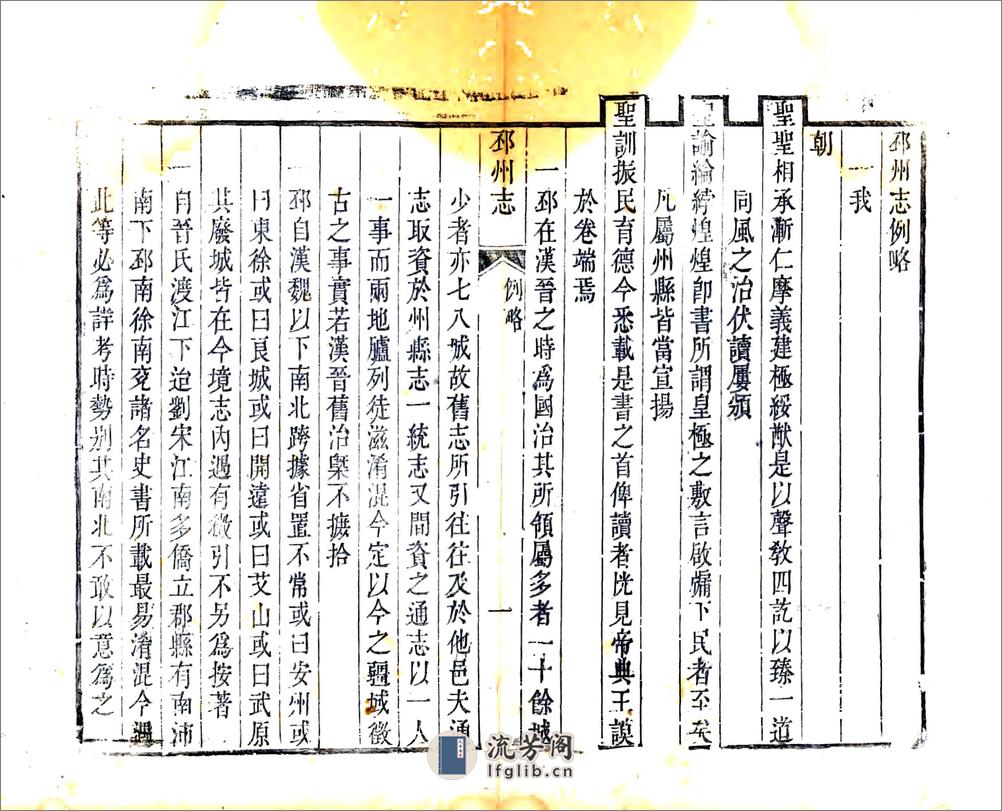 邳州志例略
一我
朝
聖聖相承漸仁摩義建極綏猷是以聲敎四訖以臻一道
同風之治伏讀屢頒
諭綸綍煌煌卽書所謂皇極之敷言啟牖下民者至矣
凡屬州縣皆當宣揚
聖訓振民育德今悉載是書之首俾讀者恍見帝典王謨
於卷端焉
一邳在漢晉之時爲國治其所領屬多者二十餘城
邳州志
例略
一
少者亦七八城故舊志所引往往及於他邑夫通
志取資於州縣志一統志又間資之通志以一人
一事而兩地臚列徒滋淆混今定以今之疆域徵
古之事實若漢晉舊治槩不摭拾
一邳自漢魏以下南北跨據省置不常或曰安州或
曰東徐或曰良城或曰開遠或曰艾山或曰武原
其廢城皆在今境志內遇有徵引不另爲按著
一自晉氏渡江下迨劉宋江南多僑立郡縣有南沛
南下邳南徐南兗諸名史書所載最易淆混今遇
此等必爲詳考時勢别其南北不敢以意爲之
流芳阁
lfglib.cn